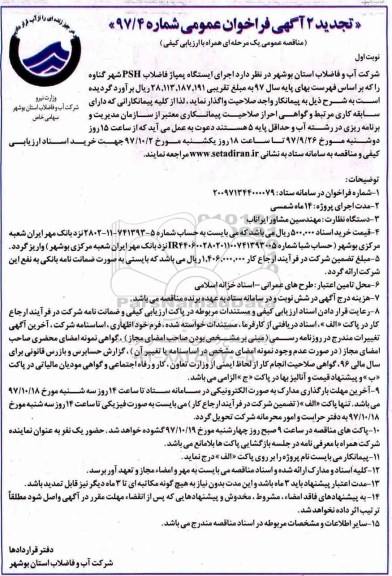 « تجدید ۲ آگهی فراخوان عمومی شماره ۹۷/۴ »
(مناقصه عمومی یک مرحله ای همراه با ارزیابی کیفی)
نوبت اول
شرکت آب و فاضلاب استان بوشهر در نظر دارد اجرای ایستگاه پمپاژ فاضلاب PSH شهر گناوه
را که بر اساس فهرست بهای پایه سال ۹۷ به مبلغ تقریبی ۲۸,۱۱۳,۱۸۷,۱۹۱ ریال برآورد گردیده
است به شرح ذیل به پیمانکار واجد صلاحیت واگذار نماید، لذا از کلیه پیمانکارانی که دارای
سابقه کاری مرتبط و گواهی احراز صلاحیت پیمانکاری معتبر از سازمان مدیریت و
برنامه ریزی در رشته آب و حداقل پایه ۵ هستند دعوت به عمل می آید که از ساعت ۱۵ روز
دوشنبه مورخ ۹۷/۹/۲۶ تا ساعت ۱۸ روز یکشنبه مورخ ۹۷/۱۰/۲ جهت خرید اسناد ارزیابی
کیفی و مناقصه به سامانه ستاد به نشانی www.setadiran.ir مراجعه نمایند.
وزارت نیرو
شرکت آب و فاضلاب استان بوشهر
سهامی خاص
توضیحات:
۱-شماره فراخوان در سامانه ستاد: ۲۰۰۹۷۱۳۴۴۰۰۰۰۷۹
۲-مدت اجرای پروژه: ۱۴ ماه شمسی
۳-دستگاه نظارت: مهندسین مشاور ایراناب
۴-قیمت خرید اسناد ۵۰۰,۰۰۰ ریال می باشد که می بایست به حساب شماره ۵-۷۴۱۳۹۳-۱۱-۲۸۰۲ نزد بانک مهر ایران شعبه
مرکزی بوشهر (حساب شبا شماره IR۴۴۰۶۰۰۲۸۰۲۰۱۱۰۰۷۴۱۳۹۳۰۰۵ نزد بانک مهر ایران شعبه مرکزی بوشهر) واریز گردد.
۵-مبلغ تضمین شرکت در فرآیند ارجاع کار ۱,۴۰۶,۰۰۰,۰۰۰ ریال می باشد که بایستی به صورت ضمانت نامه بانکی به نفع این
شرکت ارائه گردد.
۶-محل تامین اعتبار: طرح های عمرانی - اسناد خزانه اسلامی
۷-هزینه درج آگهی در شش نوبت و در سامانه ستاد به عهده برنده مناقصه می باشد.
۸-رعایت قرار دادن اسناد ارزیابی کیفی و مستندات مربوطه در پاکت ارزیابی کیفی و ضمانت نامه شرکت در فرآیند ارجاع
کار در پاکت «الف»، اسناد دریافتی از کارفرما، مستندات خواسته شده، فرم خود اظهاری، اساسنامه شرکت، آخرین آگهی
تغییرات مندرج در روزنامه رسمی (مبنی بر مشخص بودن صاحب امضای مجاز)، گواهی نمونه امضای محضری صاحب
امضای مجاز (در صورت عدم وجود نمونه امضای مشخص در اساسنامه یا تغییر آن)، گزارش حسابرس و بازرس قانونی برای
سال مالی ۹۶، گواهی صلاحیت انجام کار از لحاظ ایمنی از وزارت تعاون، کار و رفاه اجتماعی و گواهی مودیان مالیاتی در پاکت
«ب» و پیشنهاد قیمت و آنالیز بها در پاکت «ج» الزامی می باشد.
۹-آخرین مهلت بارگذاری مدارک به صورت الکترونیکی در سامانه ستاد تا ساعت ۱۴ روز سه شنبه مورخ ۹۷/۱۰/۱۸
می باشد. تنها پاکت «الف» (تضمین شرکت در فرآیند ارجاع کار) می بایست به صورت فیزیکی تا ساعت ۱۴ روز سه شنبه مورخ
۹۷/۱۰/۱۸ به دفتر حراست و امور محرمانه شرکت تحویل گردد.
۱۰-پاکت های مناقصه در ساعت ۹ صبح روز چهارشنبه مورخ ۹۷/۱۰/۱۹ گشوده خواهد شد. حضور یک نفر به عنوان نماینده
شرکت همراه با معرفی نامه در جلسه بازگشایی پاکت ها بلامانع می باشد.
۱۱-پیمانکار می بایست نام پروژه را بر روی پاکت «الف» درج نماید.
۱۲-کلیه اسناد و مدارک ارائه شده و اسناد مناقصه می بایست به مهر و امضاء مجاز و تعهد آور برسد.
۱۳-مدت اعتبار پیشنهاد باید ۳ ماه باشد و این مدت بدون نیاز به هیچ گونه مکاتبه ای تا ۳ ماه دیگر نیز قابل تمدید باشد.
۱۴-به پیشنهادهای فاقد امضاء، مشروط، مخدوش و پیشنهادهایی که پس از انقضاء مهلت مقرر در آگهی واصل شود مطلقاً
ترتیب اثر داده نخواهد شد.
۱۵-سایر اطلاعات و مشخصات مربوطه در اسناد مناقصه مندرج می باشد.
دفتر قراردادها
شرکت آب و فاضلاب استان بوشهر